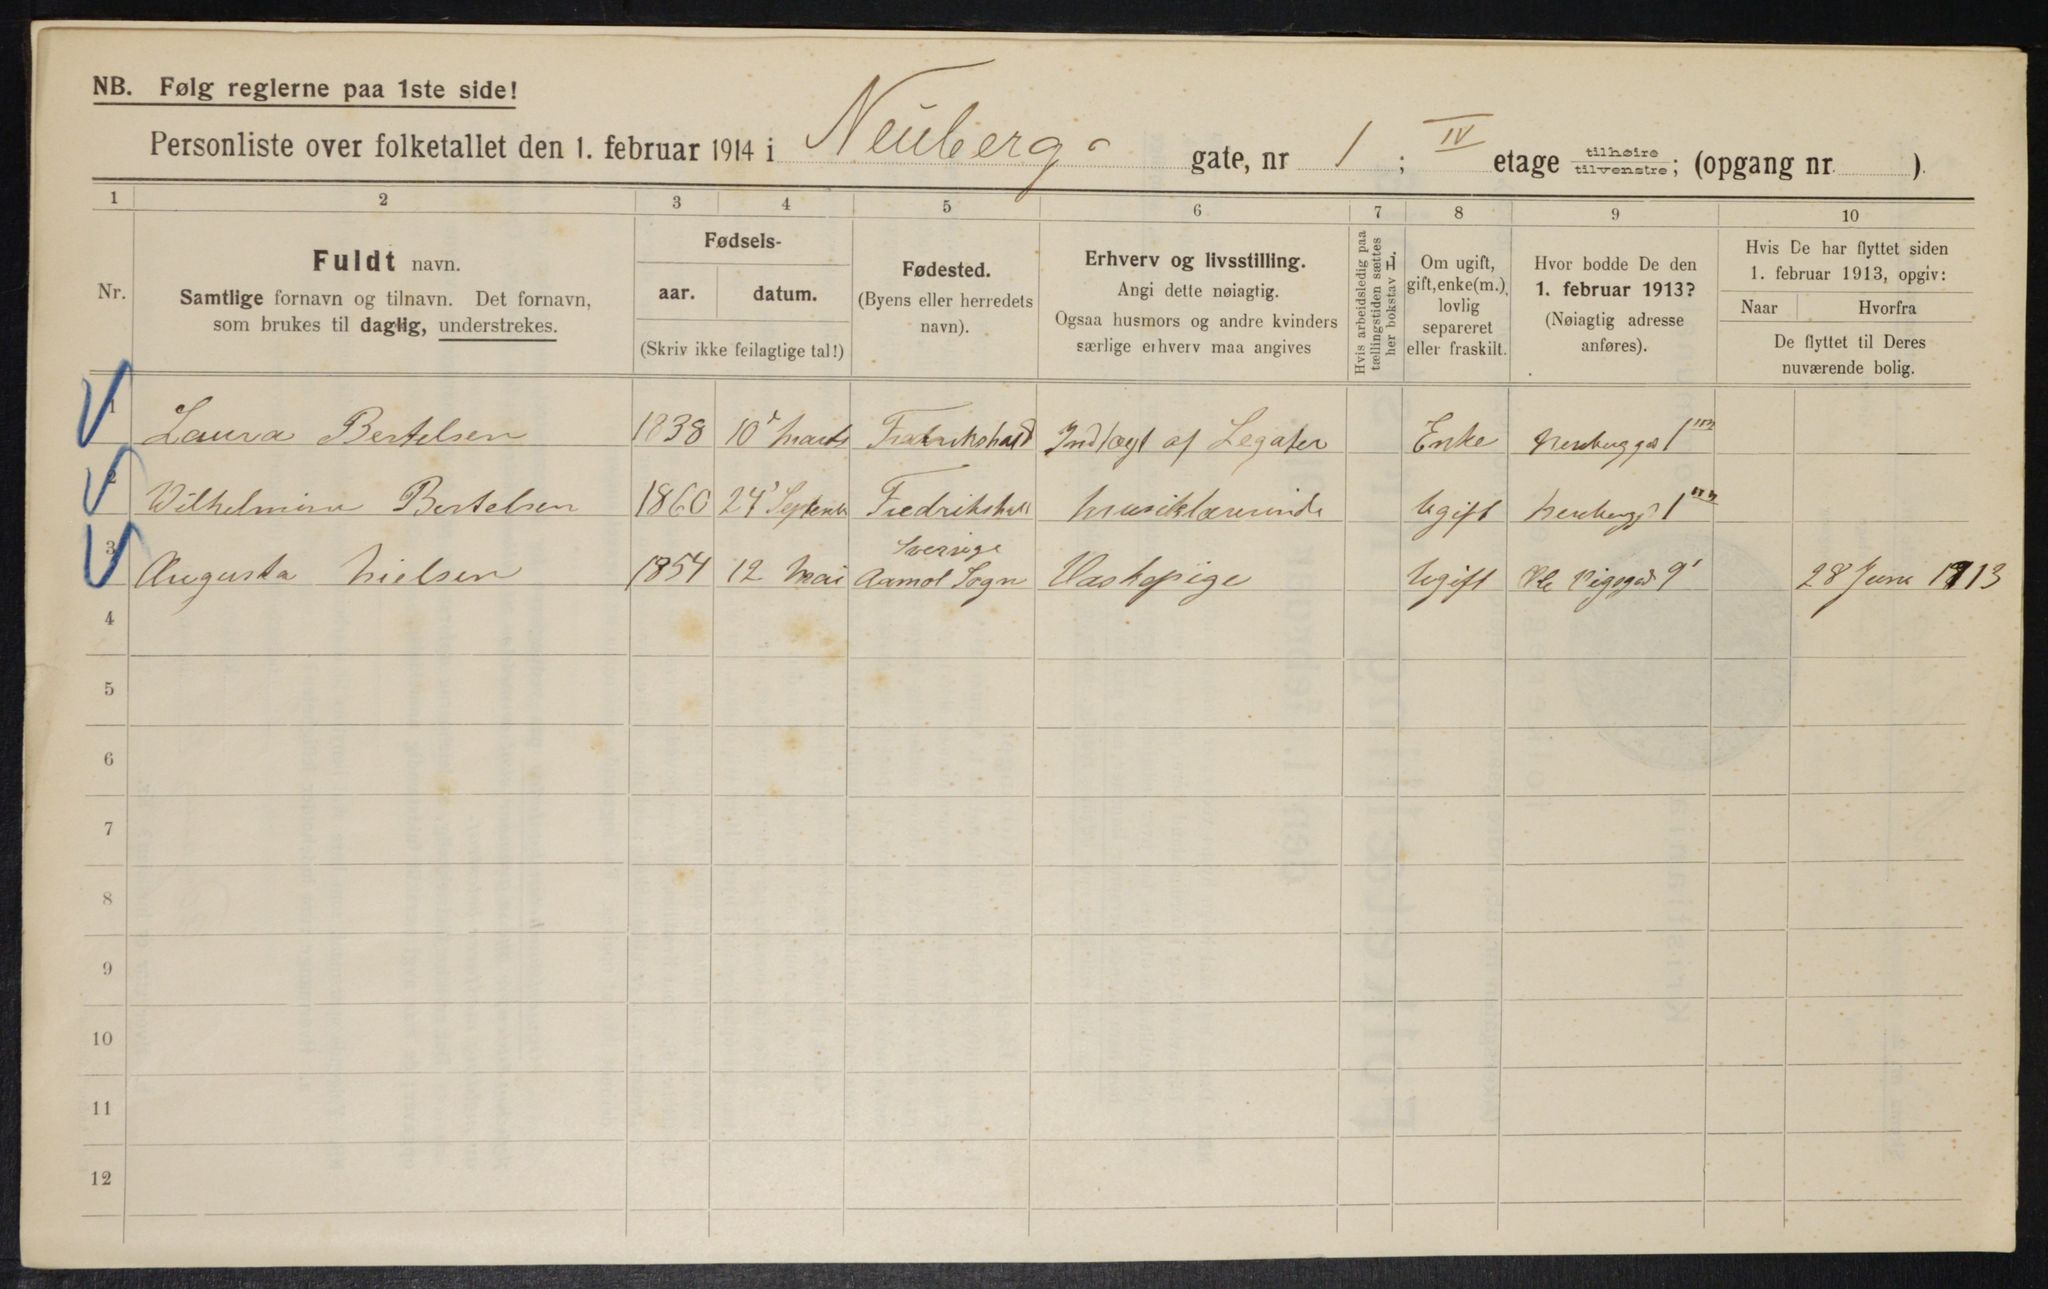 NB. Følg reglerne paa 1ste side!
Personliste over folketallet den 1. februar 1914 i Neuberg- gate, nr 1; IV etage tilhøire tilvenstre; (opgang nr ).
1 2 3 4 5 6 7 8 9 10
Nr.
Fuldt navn.
Samtlige fornavn og tilnavn. Det fornavn,
som brukes til daglig, understrekes.
Fødsels-
aar. datum.
(Skriv ikke feilagtige tal!)
Fødested.
(Byens eller herredets
navn).
Erhverv og livsstilling.
Angi dette nøiagtig.
Ogsaa husmors og andre kvinders
særlige erhverv maa angives
Hvis arbeidsledig paa
tællingstiden sættes
her bokstav L.
Om ugift,
gift, enke(m.),
lovlig
separeret
eller fraskilt.
Hvor bodde De den
1. februar 1913?
(Nøiagtig adresse
anføres).
Hvis De har flyttet siden
1. februar 1913, opgiv:
Naar Hvorfra
De flyttet til Deres
nuværende bolig.
1 Laura Bertelsen 1838 10 Marts Fredrikshald Indlægt af Legater Enke Neuberggd 1
2 Wilhelmine Bertelsen 1860 24 September Fredrikshald Musiklærerinde Ugift Neubergg 1
3 Augusta Nielsen 1854 12 Mai Sverige Aamol Sogn Vaskepige Ugift 9 28 Juni 1913
4
5
6
7
8
9
10
11
12